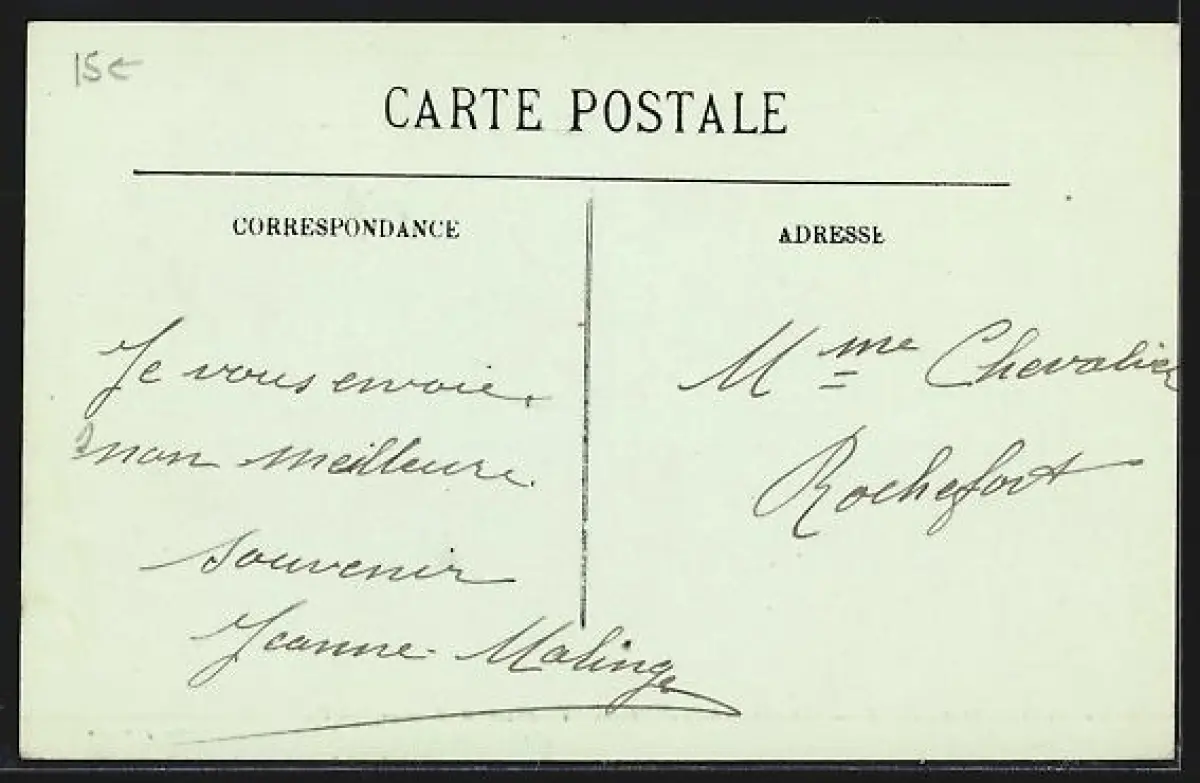 15€
CARTE POSTALE
CORRESPONDANCE
ADRESSE
Je vous envoie
mon meilleure
souvenir
Jeanne Malinge
Mme Chevalier
Rochefort